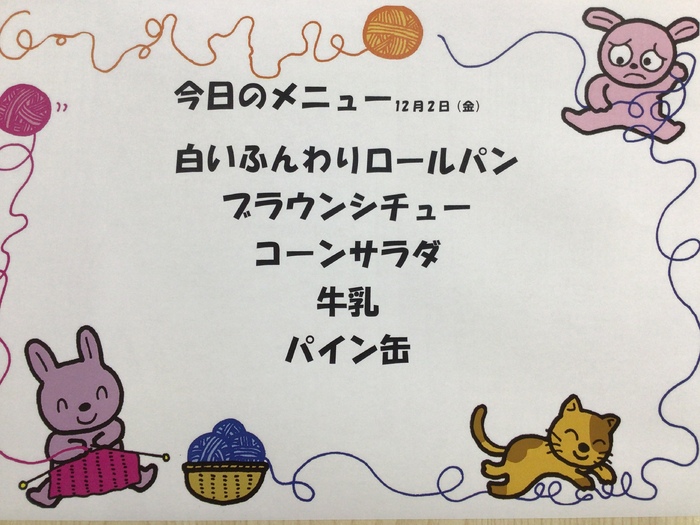 今日のメニュー12月2日(金)
白いふんわりロールパン
ブラウンシチュー
コーンサラダ
牛乳
パイン缶